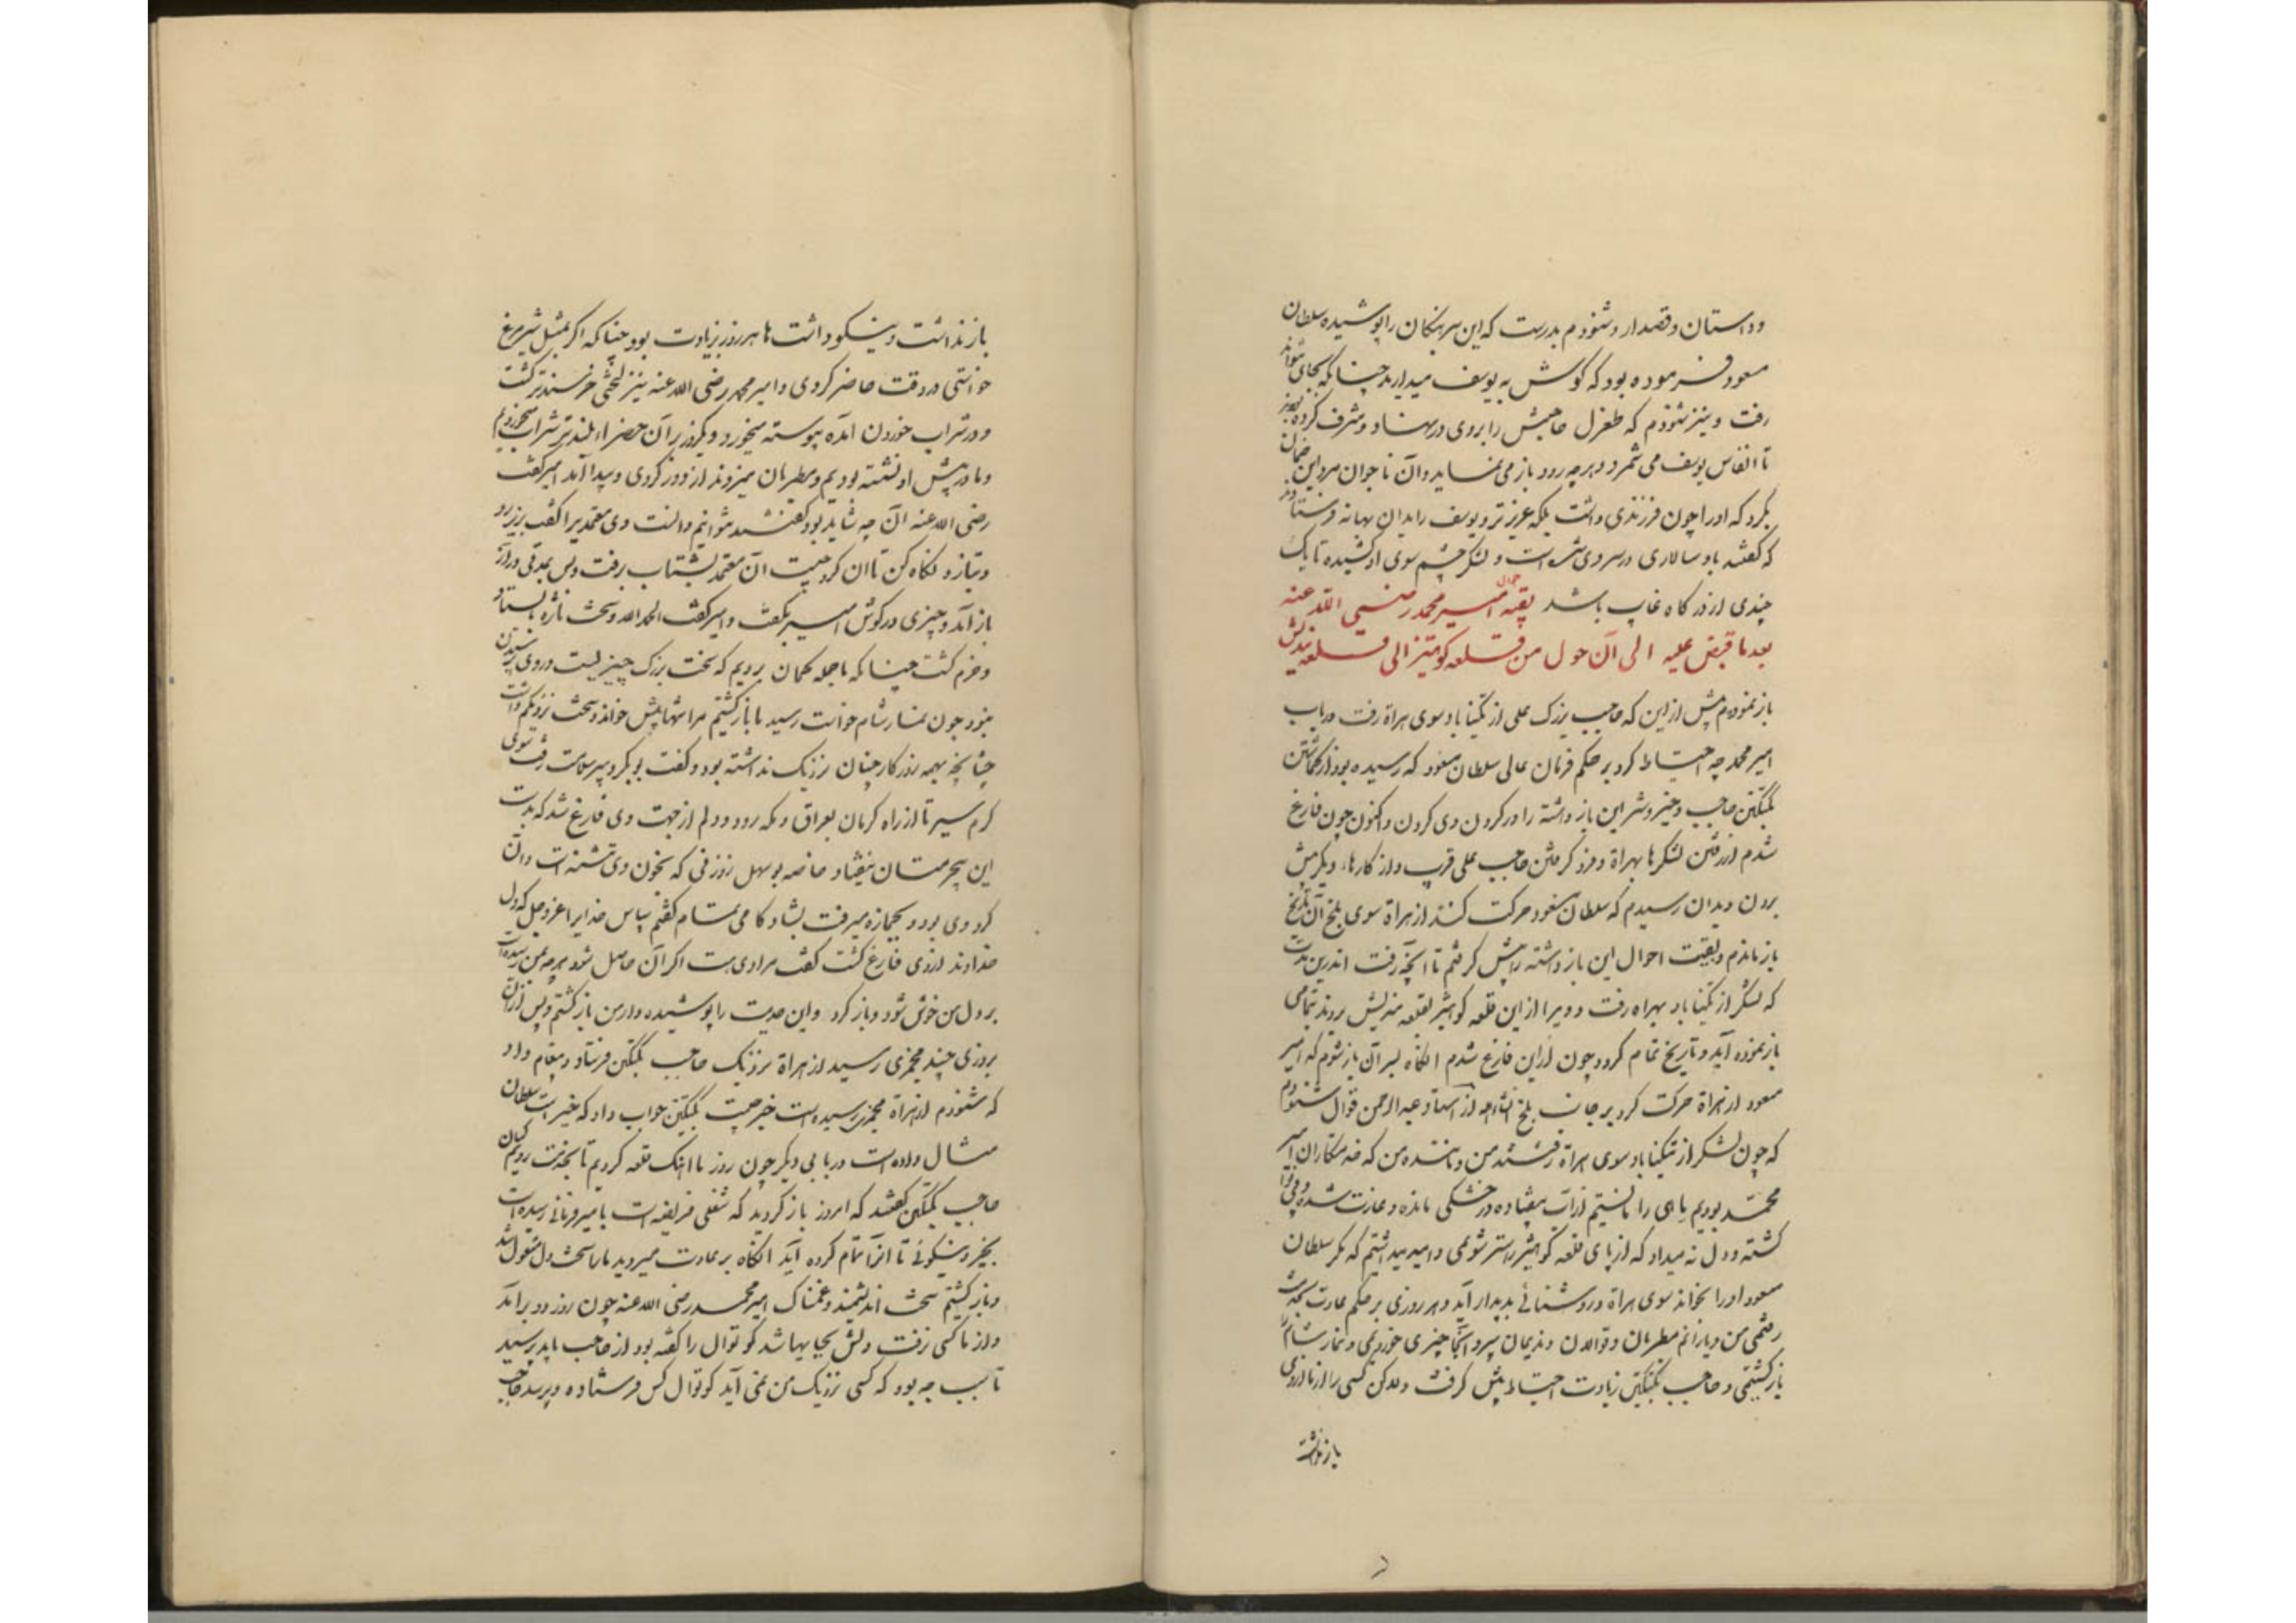 وداستان وقصدار وشنودم بدرست که این سرهنگان را پوشیده سلطان
مسعود فرموده بود که گوش به یوسف میدارید چنانکه بجای نتواند
رفت ونیز شنودم که طغرل حاجبش را بروی درنهان مشرف کرده بودند
تا انفاس یوسف می شمرد وهرچه رود باز می نماید وآن ناجوانمرد این ضمان
بکرد که اورا چون فرزندی داشت بلکه عزیزتر ویوسف را بدان بهانه فرستادند
که گفتند باد سالاری درسر وی شده است ولشکر چشم سوی او کشیده تا یک
چندی از درکاه غایب باشد بقیه احوال امیر محمد رضی الله عنه
بعد ما قبض علیه الی آن حول من قلعه کوهتیز الی قلعه مندیش
باز نمودم پیش ازین که حاجب بزرک علی از تکیناباد سوی هراة رفت درباب
امیر محمد چه احتیاط کرد بر حکم فرمان عالی سلطان مسعود که رسیده بود از کماشتن
بکتکین حاجب وخیر وشر این باز داشته را درکردن وی کردن واکنون چون فارغ
شدم از رفتن لشکرها بهراة وفرو کرفتن حاجب علی قریب واز کارها دیگر پیش
بردن وبدان رسیدم که سلطان مسعود حرکت کند از هراة سوی بلخ آن تاریخ
باز ماندم وبقیت احوال این باز داشته را پیش کرفتم تا آنچه رفت اندرین مدت
که لشکر از تکیناباد بهراه رفت و ویرا از این قلعه کوهتیز بقلعه مندیش بردند بتمامی
باز نموده آید وتاریخ تمام کردد وچون ازاین فارغ شدم آنکاه بسر آن باز شوم که امیر
مسعود از هراة حرکت کرد بر جانب بلخ انشاءالله از استاد عبدالرحمن قوال شنودم
که چون لشکر از تکیناباد سوی هراة رفتند من وماننده من که خدمتکاران امیر
محمد بودیم ماهی را مانستیم از آب بیفتاده ودرخشکی مانده وغارت شده وبی نوا
کشته ودل نه میداد که از پای قلعه کوهتیز زاستر شویمی وامید میداشتیم که مکر سلطان
مسعود اورا بخواند سوی هراة وروشنائی پدیدار آید وهر روزی بر حکم عادت بخدمت
رفتمی من ویارانم مطربان وقوالان وندیمان پیر وآنجا چیزی خوردیمی ونماز شام را
بازکشتمی وحاجب بکتکین زیادت احتیاط پیش کرفت ولکن کسی را از ما از وی
باز نداشت
باز نداشت ونیکوداشت ها هر روز بزیادت بود چنانکه اکر بمثل شیر مرغ
خواستی دروقت حاضر کردی وامیر محمد رضی الله عنه نیز لختی خرسندتر کشت
ودر شراب خوردن آمد وپیوسته میخورد ویکروز بر آن حضراء بلندتر شراب میخوردیم
وما درپیش او نشسته بودیم ومطربان میزدند از دور کردی پیدا آمد امیر گفت
رضی الله عنه آن چه شاید بود گفتند نتوانیم دانست وی معتمدی را گفت بزیر رو
وبتاز ونگاه کن تا آن کرد چیست آن معتمد بشتاب برفت وپس بمدتی دراز
باز آمد وچیزی درگوش امیر بگفت وامیر گفت الحمدلله وسخت تازه بایستاد
وخرم کشت چنانکه ما جمله گمان بردیم که سخت بزرک چیزیست وروی پرسیدن
نبود چون نماز شام خواست رسید ما باز کشتیم مرا تنها پیش خواند وسخت نزدیکم داشت
چنانچه بهمه روزگار چنان نزدیک نداشته بود وگفت بوبکر دبیر سلامت رفت سوی
کرم سیر تا از راه کرمان بعراق ومکه رود ودلم از جهت وی فارغ شد که بدست
این بیحرمتان نیفتاد خاصه بوسهل زوزنی که بخون وی تشنه است وآن
کرد وی بود وبجمازه میرفت بشادکامی تمام گفتم سپاس خدایرا عزوجل که دل
خداوند از وی فارغ کشت گفت مرادی هست اکر آن حاصل شود هرچه بمن رسیده است
بر دل من خوش شود وباز کرد واین حدیث را پوشیده دار من باز کشتم وپس از آن
بروزی چند مجمزی رسید از هراة نزدیک حاجب بکتکین فرستاد وپیغام داد
که شنودم از هراة مجمزی رسیده است خبر چیست بکتکین جواب داد که خیر است سلطان
مثال داده است دربابی دیگر چون روز ما آهنک قلعه کردیم تا بخدمت رویم کسان
حاجب بکتکین گفتند که امروز باز کردید که شغلی فریضه است بامیر فرمانی رسیده است
بخیر ونیکوئی تا آنرا تمام کرده آید آنکاه بر عادت میروید ما را سخت دل مشغول شد
وباز کشتیم سخت اندیشمند وغمناک امیر محمد رضی الله عنه چون روز دو برآمد
واز ما کسی نرفت دلش بجایها شد کوتوال را گفته بود از حاجب باید پرسید
تا سبب چه بود که کسی نزدیک من نمی آید کوتوال کس فرستاده وپرسید حاجب